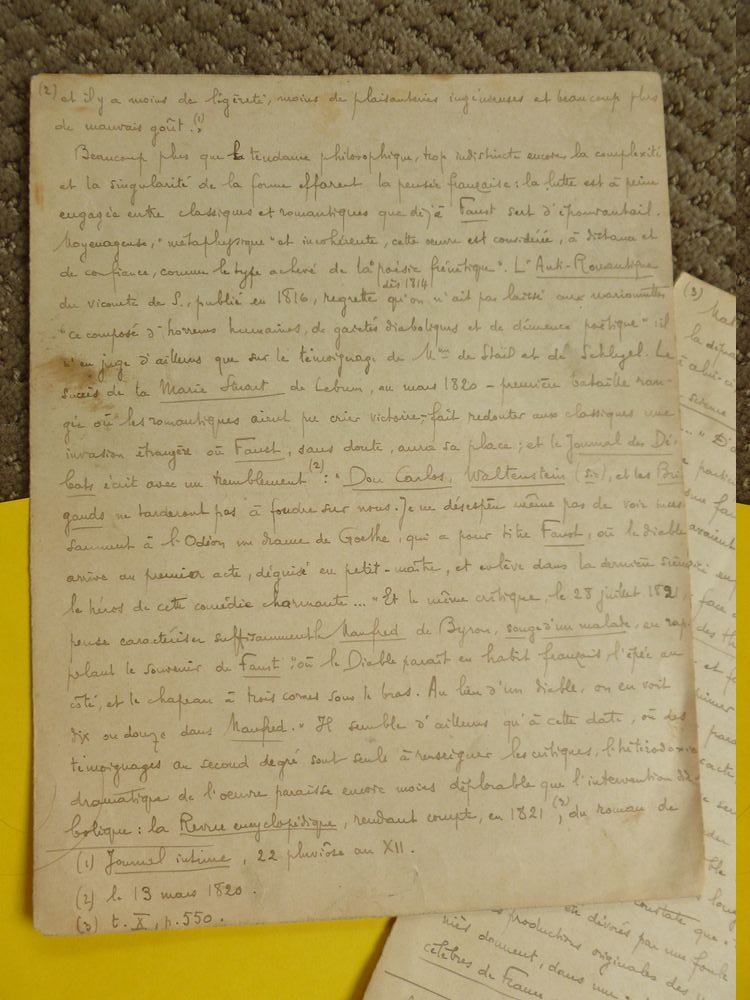 (2) et il y a moins de légèreté, moins de plaisanteries ingénieuses et beaucoup plus
de mauvais goût.(1)
Beaucoup plus que la tendance philosophique, trop indistincte encore, la complexité
et la singularité de la forme effarent la pensée française : la lutte est à peine
engagée entre classiques et romantiques que déjà Faust sert d'épouvantail.
Moyenageuse, "métaphysique" et incohérente, cette œuvre est considérée, à distance et
de confiance, comme le type achevé de la "poésie frénétique". L'Anti-Romantique
du vicomte de S., publié en 1816, regrette qu'on n'ait pas laissé dès 1814 aux marionnettes
"ce composé d'horreurs humaines, de gaietés diaboliques et de démence poétique" : il
n'en juge d'ailleurs que sur le témoignage de Mme de Staël et de Schlegel. Le
succès de la Marie Stuart de Lebrun, en mars 1820 – première bataille ran-
gée où les romantiques aient pu crier victoire – fait redouter aux classiques une
invasion étrangère où Faust, sans doute, aura sa place ; et le Journal des Dé-
bats écrit avec un tremblement (2) : "Don Carlos, Waltenstein (sic), et les Bri-
gands ne tarderont pas à fondre sur nous. Je ne désespère même pas de voir inces
samment à l'Odéon un drame de Goethe, qui a pour titre Faust, où le diable
arrive au premier acte, déguisé en petit-maître, et enlève dans la dernière scène
le héros de cette comédie charmante... " Et le même critique, le 28 juillet 1821,
pense caractériser suffisamment le Manfred de Byron, songe d'un malade, en rap
pelant le souvenir de Faust "où le Diable paraît en habit français, l'épée au
côté, et le chapeau à trois cornes sous le bras. Au lieu d'un diable, on en voit
dix ou douze dans Manfred." Il semble d'ailleurs qu'à cette date, où des
témoignages au second degré sont seuls à renseigner les critiques, l'hétérodoxie
dramatique de l'œuvre paraisse encore moins déplorable que l'intervention dia-
bolique : la Revue encyclopédique, rendant compte, en 1821 (3), du roman de
(1) Journal intime, 22 pluviôse an XII.
(2) le 13 mars 1820.
(3) t. X, p. 550.
(3)
la
science
face
des
constate que
en dévorés par une foule
productions originales des
donnent, dans une
célèbres de France